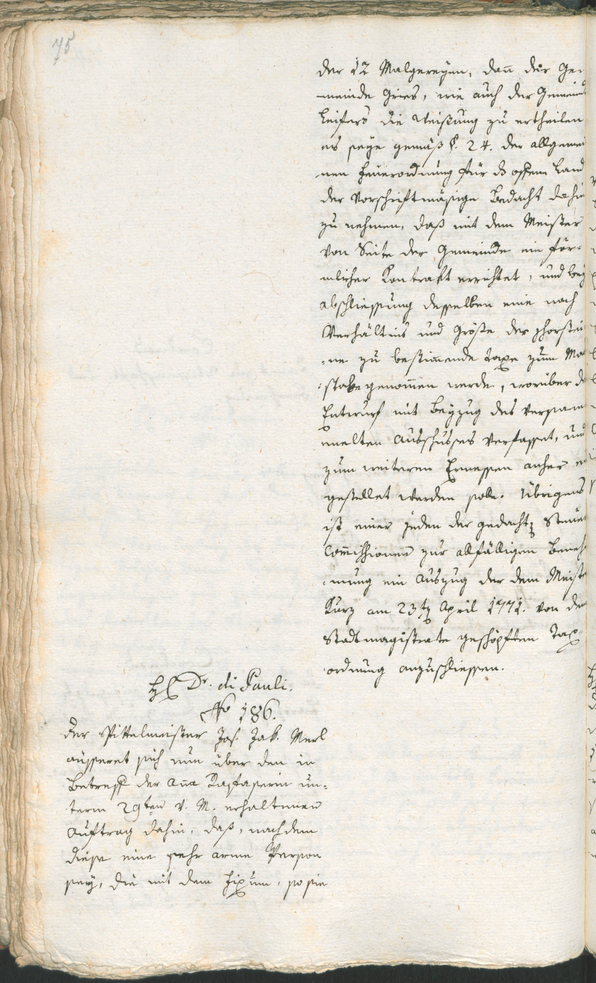 75
der 12 Malgereyen, dan̄ der Ge-
meinde Gries, wie auch der Gemeinde
Leifers die Weißung zu ertheilen
es seye gemäß §. 24. der allgemei
nen Feuerordnung für das offene Land
der Vorschriftmäsige Bedacht dahin
zu nehmen, daß mit dem Meister
von Seite der Gemeinde ein för-
mlicher Kontrakt errichtet, und bey
abschliessung desselben eine nach
Verhältnis und Größe der Schorstei
-ne zu bestim̄ende Taxe zum Ma
-stabe genom̄en werde, worüber der
Entwurf mit Beyzug des versam
melten Ausschusses verfasset, und
zum weiteren Ermessen anher
gestellet werden solle. Übrigens
ist einer jeden der gedacht Steuer
Com̄issionen zur allfälligen Beneh-
-mung ein Auszug der dem Meister
Kurz am 23ten April 1771. von dem
Stadtmagistrate geschöpften Tax
ordnung anzuschliessen.
H Dr. di Pauli.
No 186.
Der Spittelmeister Jos. Jak. Merl
äusseret sich nun über den in
Betreff der Ana un-
term 29ten v. M. erhaltenen
Auftrag dahin; daß, nachdem
diese eine sehr arme Person
sey, die mit dem Fixum, so sie